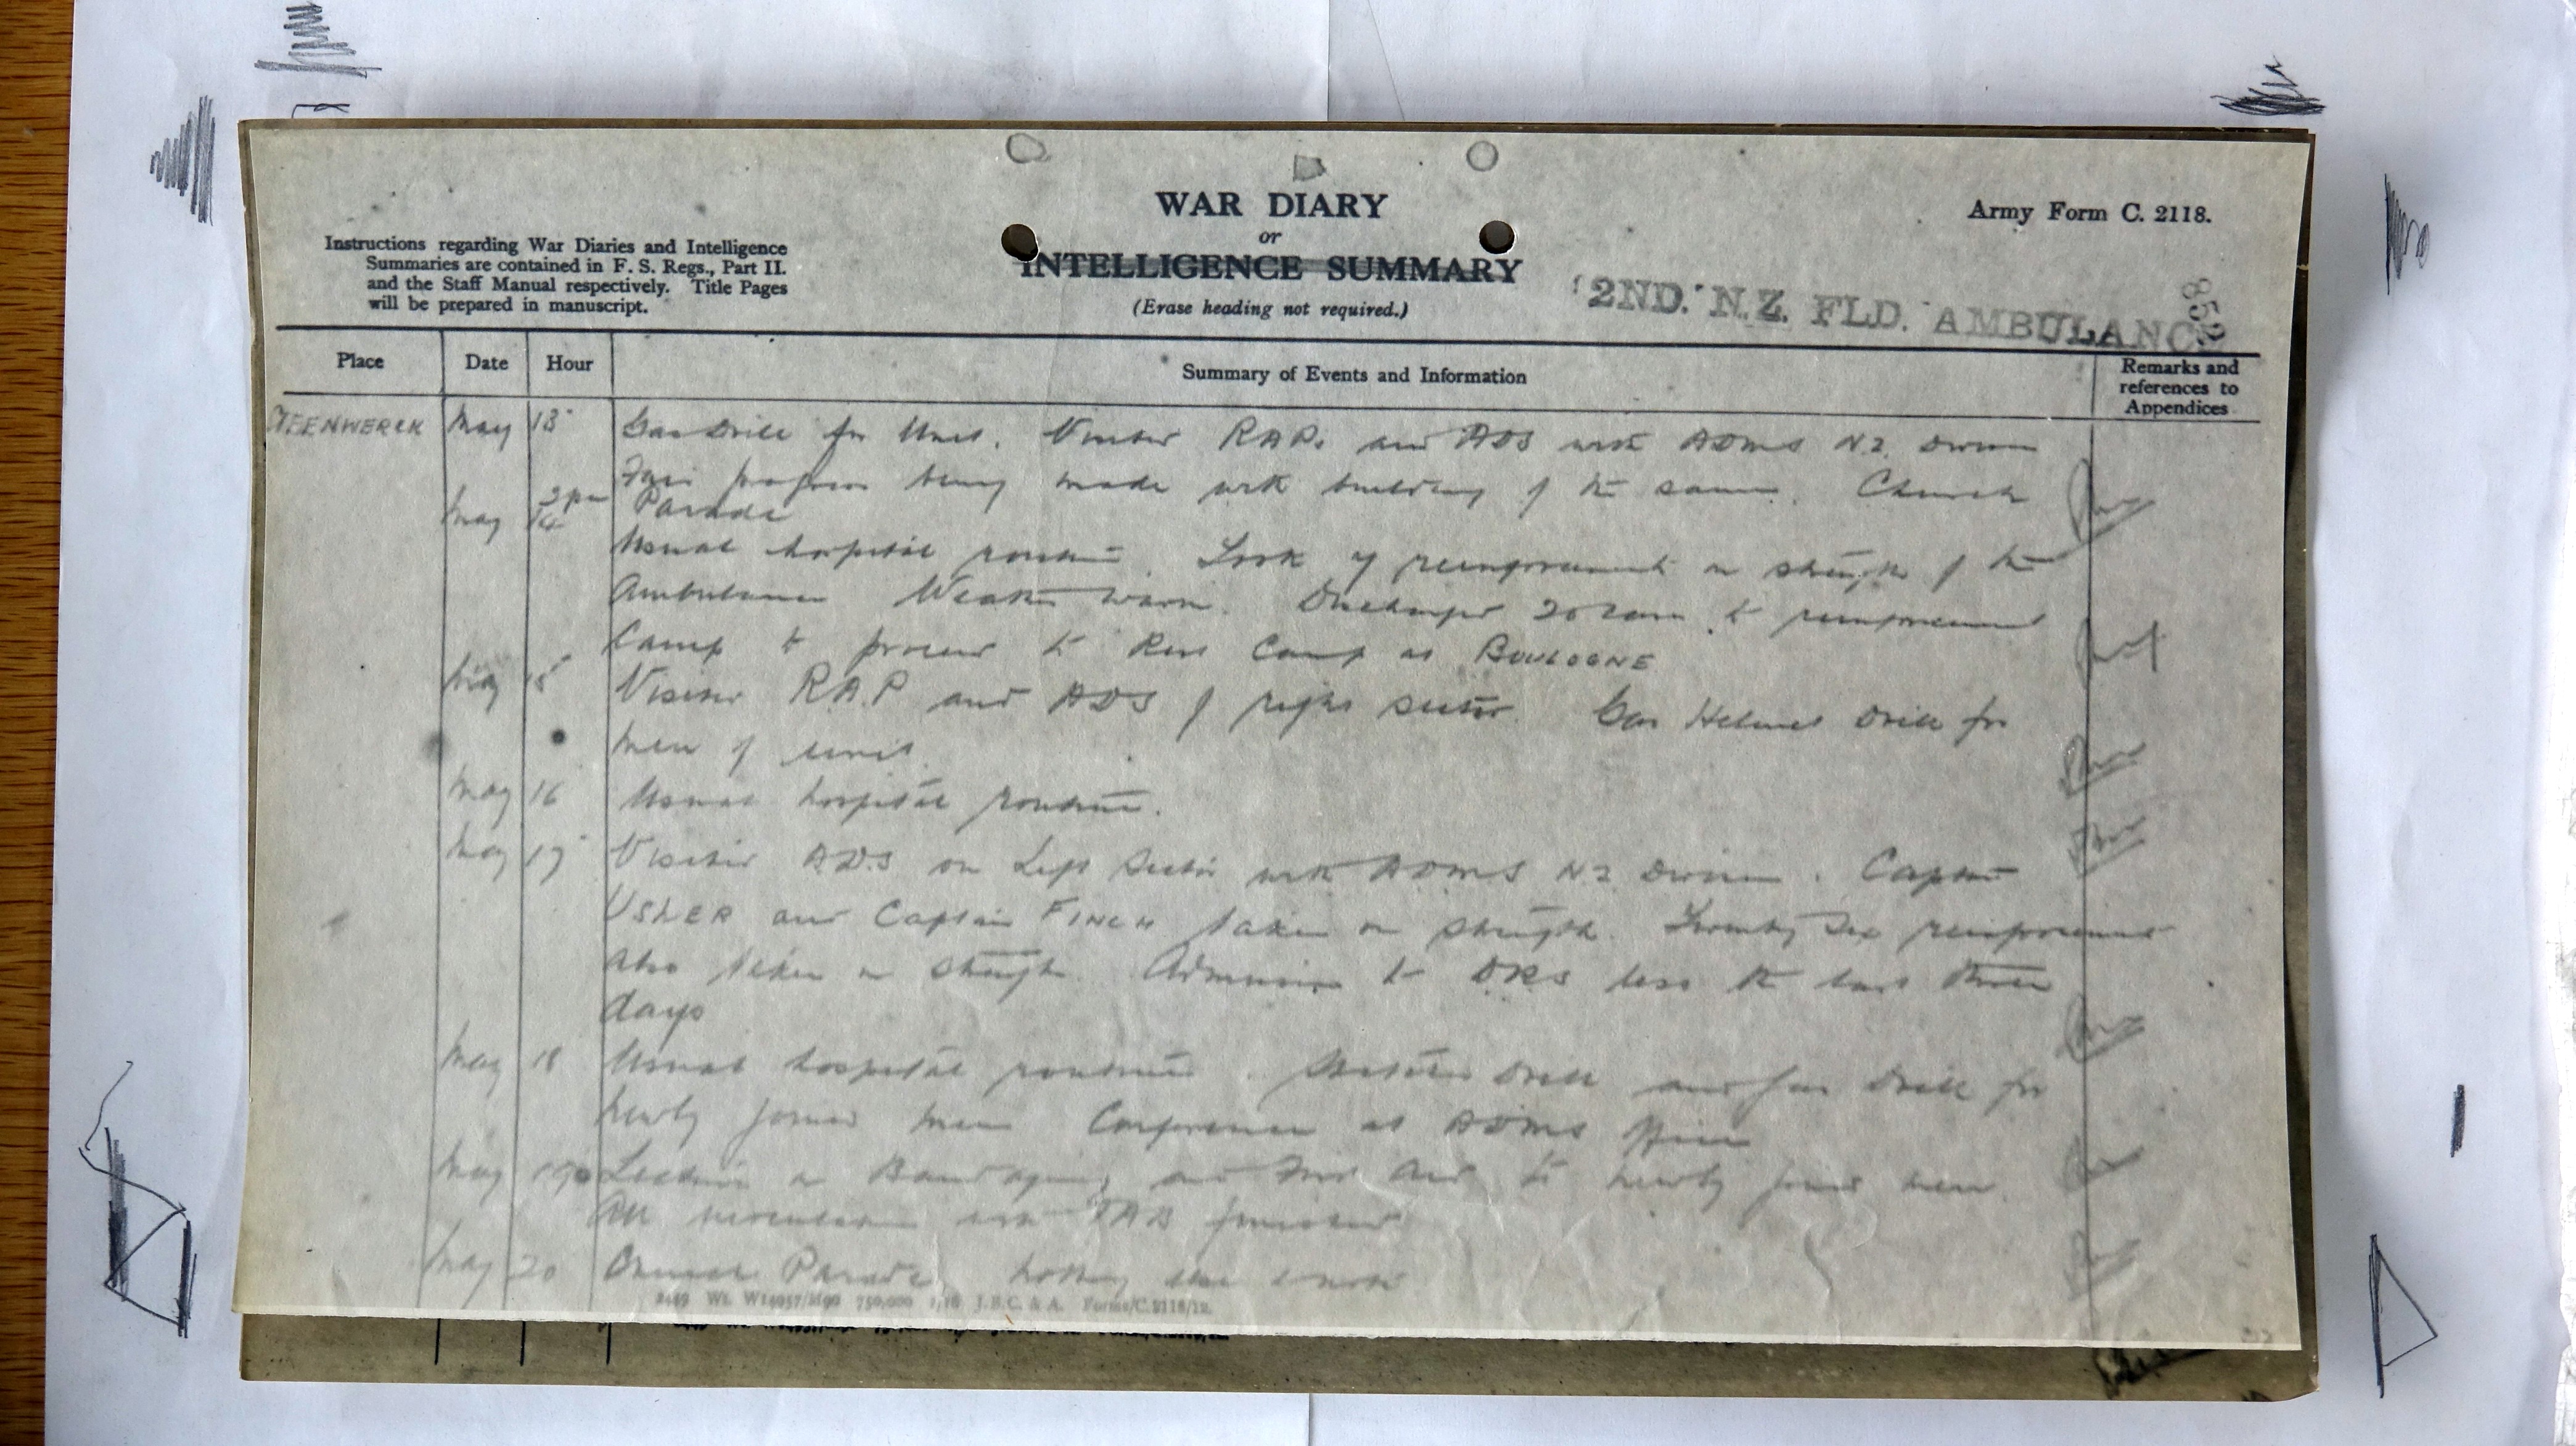 WAR DIARY
or
INTELLIGENCE SUMMARY
(Erase heading not required.)
Army Form C. 2118.
Instructions regarding War Diaries and Intelligence
Summaries are contained in F. S. Regs., Part II.
and the Staff Manual respectively. Title Pages
will be prepared in manuscript.
2ND. N.Z. FLD. AMBULANCE
852
Place Date Hour Summary of Events and Information Remarks and
references to
Appendices
STEENWERCK May 13 Gas Drill for Unit. Visited RAPs and ADS with ADMS N.Z. Division
Fair progress being made with building of the same. Church
2pm Parade
May 14
Usual hospital routine. Took reinforcement on strength of the
Ambulance Weather warm. Discharged to reinforcement
Camp to proceed to Rest Camp at BOULOGNE
May 15 Visited R.A.P and ADS of right sector. Gas Helmet Drill for
men of unit.
May 16 Usual hospital routine.
May 17 Visited A.D.S on Left Sector with ADMS N.Z Division. Captain
USHER and Captain FINCH taken on strength. Twenty Six reinforcements
also taken on strength. Admissions to DRS less the last three
days
May 18 Usual hospital routine. Stretcher Drill and Gas Drill for
newly joined men Conference at ADMS Office
May 19 Lecture on Bandaging and First Aid to newly joined men.
All inoculation with TAB finished
May 20 Church Parade, nothing else to note
2449 Wt. W14957/M90 750,000 1/16 J.B.C. & A. Forms/C.2118/12.